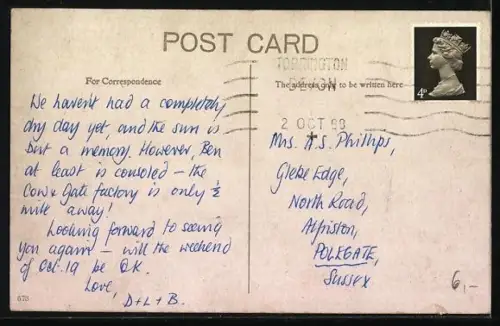 POST CARD
TORRINGTON
DEVON
2 OCT 68
4D
For Correspondence
The address only to be written here
We haven't had a completely
dry day yet, and the sun is
but a memory. However, Ben
at least is consoled – the
Cow & Gate factory is only ½
mile away!
Looking forward to seeing
you again – will the weekend
of Oct. 19 be O.K.
Love,
D+L+B.
Mrs. A.S. Phillips,
Glebe Edge,
North Road,
Alfriston,
POLEGATE,
Sussex
678
6,–